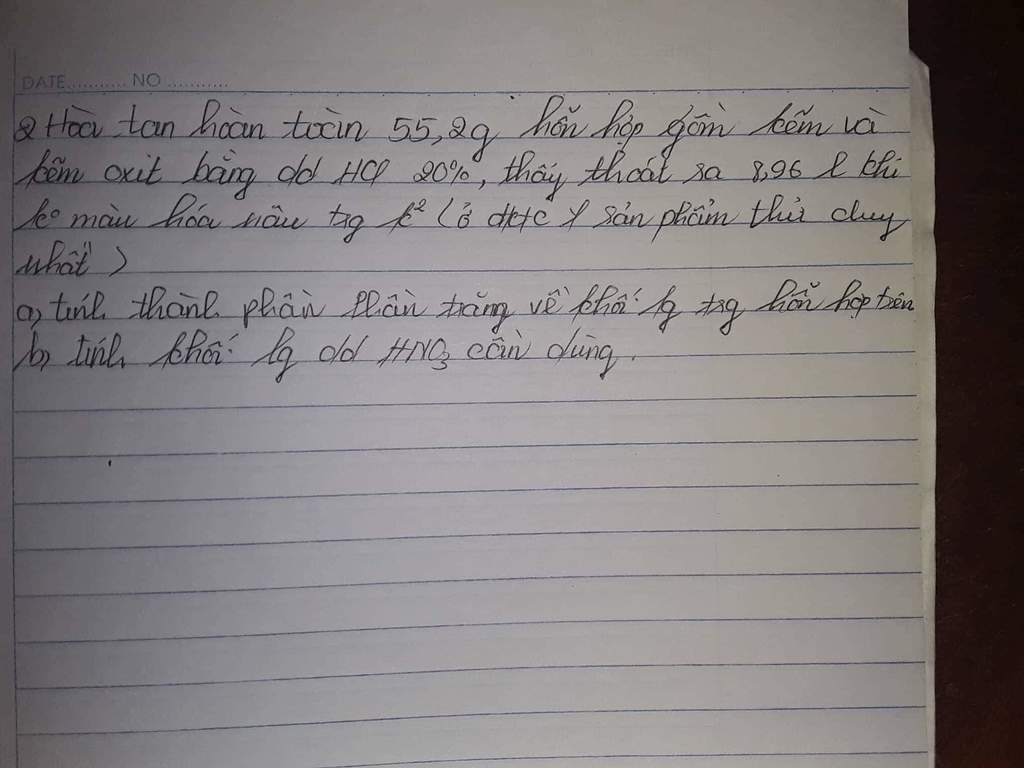 DATE........... NO ............
2 Hòa tan hoàn toàn 55,2g hỗn hợp gồm kẽm và
kẽm oxit bằng dd HCl 20%, thấy thoát ra 8,96 l khí
ko màu hóa nâu trg k2 (ở đktc) sản phẩm thử duy
nhất)
a, tính thành phần phần trăm về khối lg trg hỗn hợp trên
b, tính khối lg dd HNO3 cần dùng.